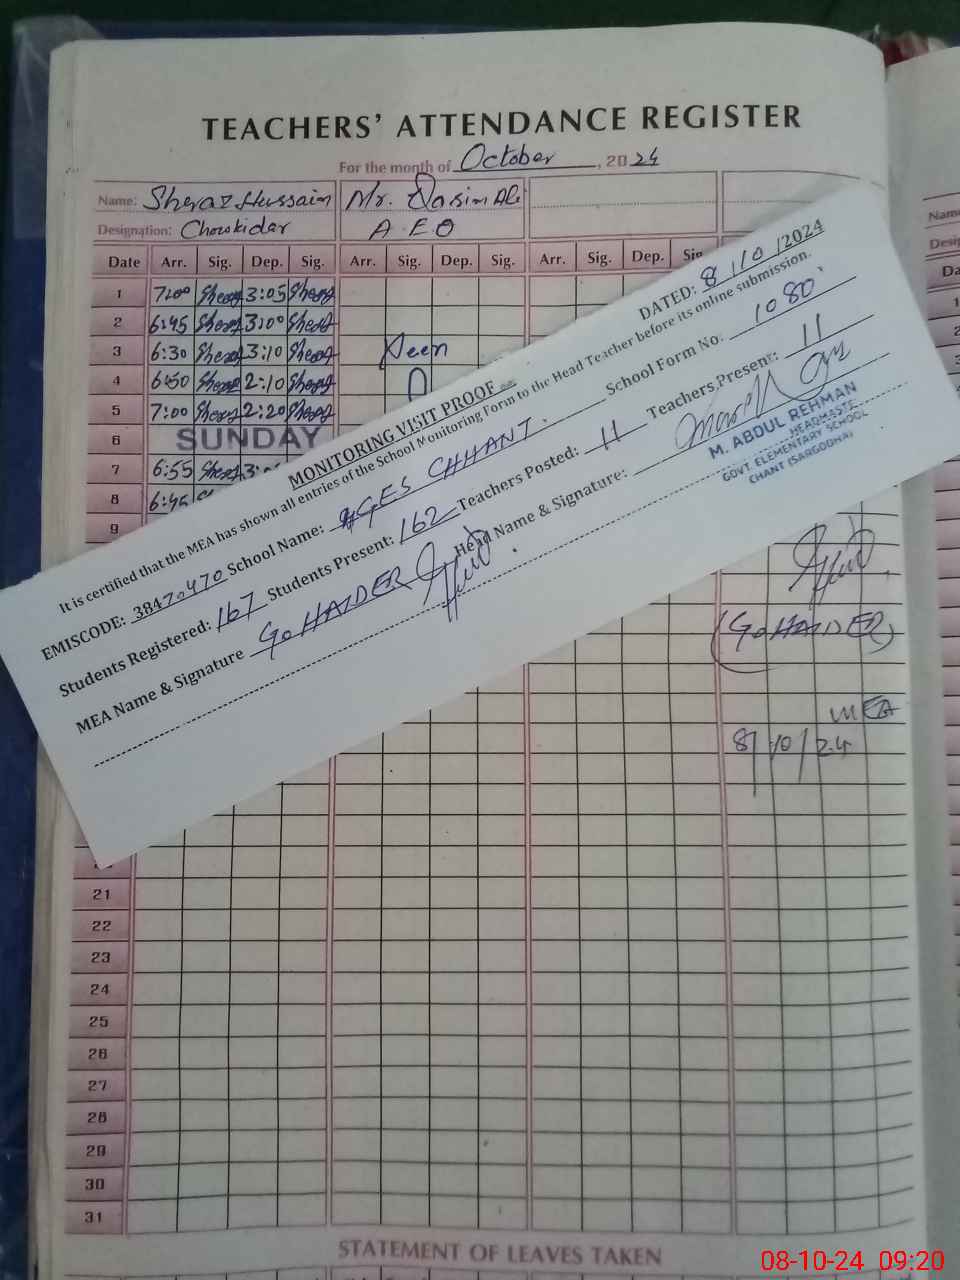 TEACHERS' ATTENDANCE REGISTER
For the month of October, 2024
Name: Sheraz Hussain Mr. Qasim Ali
Designation: Chowkidar A.E.O
Date Arr. Sig. Dep. Sig. Arr. Sig. Dep. Sig. Arr. Sig. Dep. Sig
1 7:00 Sheraz 3:05 Sheraz
2 6:45 Sheraz 3:00 Sheraz
3 6:30 Sheraz 3:10 Sheraz Seen
4 6:50 Sheraz 2:10 Sheraz
5 7:00 Sheraz 2:20 Sheraz
6 SUNDAY
7 6:55 Sheraz
8 6:45
9
DATED: 8/10/2024
MONITORING VISIT PROOF
It is certified that the MEA has shown all entries of the School Monitoring Form to the Head Teacher before its online submission.
EMISCODE: 38470470 School Name: GES CHHANT. School Form No: 1080
Students Registered: 167 Students Present: 162 Teachers Posted: 11 Teachers Present: 11
MEA Name & Signature G. HAIDER Head Name & Signature:
M. ABDUL REHMAN
HEADMASTE
GOVT. ELEMENTARY SCHOOL
CHANT (SARGODHA)
(G. HAIDER)
MEA
8/10/24
21
22
23
24
25
26
27
28
29
30
31
STATEMENT OF LEAVES TAKEN
Name
Desig
Da
1
2
3
08-10-24 09:20